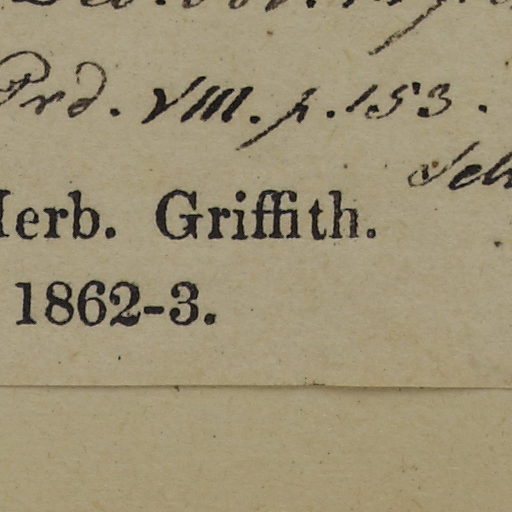 Prd. VIII. p. 153.
Herb. Griffith.
1862-3.